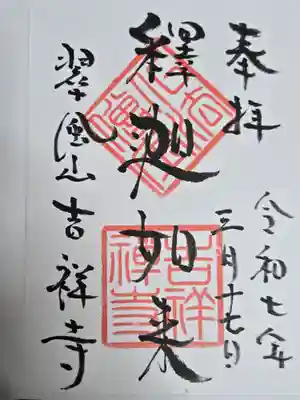 奉拝
令和七年
三月十七日
釋迦如来
翠風山吉祥寺
吉祥
禪寺